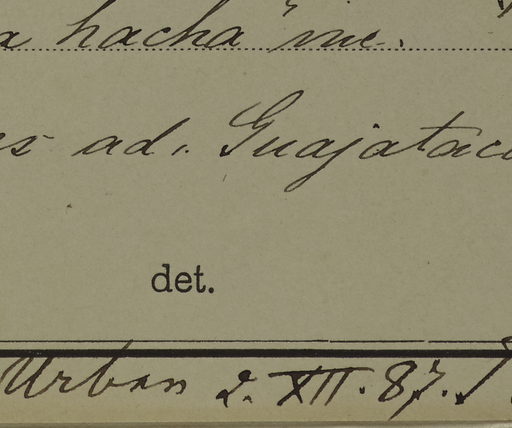 a hacha" inc.
es ad. Guajatac
det.
Urban 2. XII. 87.